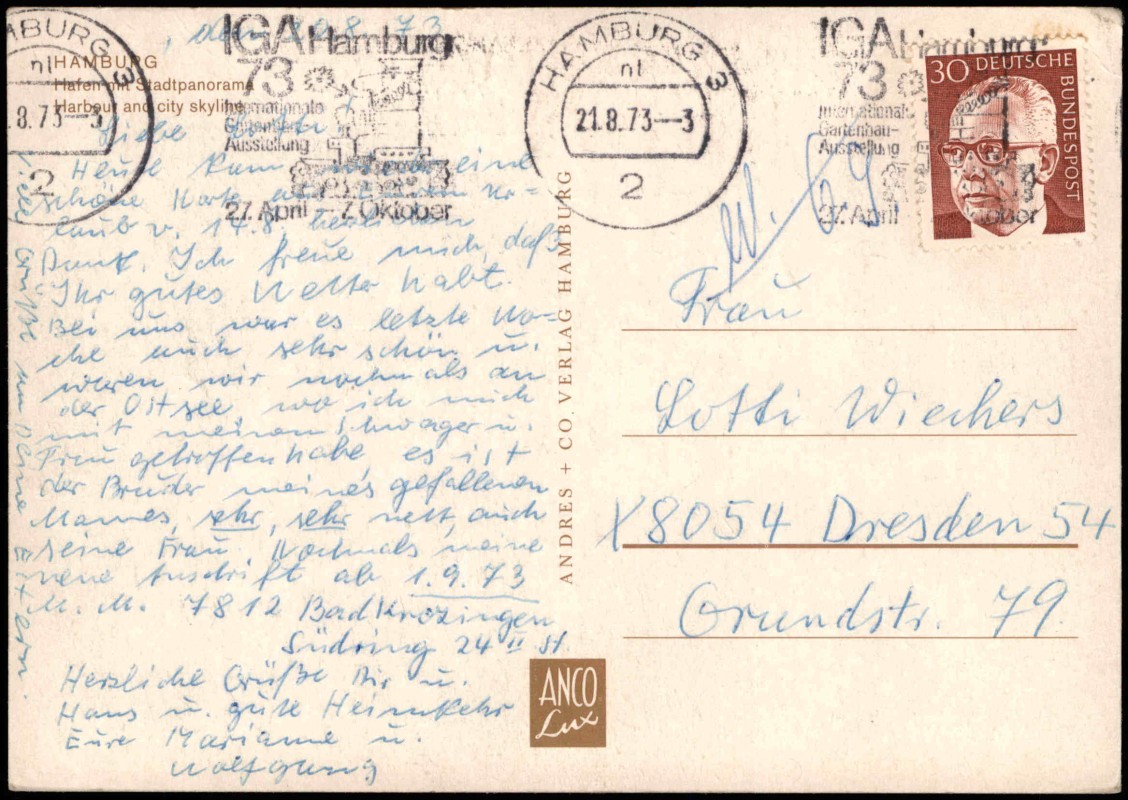 HAMBURG
Hafen mit Stadtpanorama
Harbour and city skyline
, den 20.8.73
Liebe
Heute kam eine
schöne Karte aus Ur=
laub v. 14.8. herzlichen
Dank. Ich freue mich, daß
Ihr gutes Wetter habt.
Bei uns war es letzte Wo=
che auch sehr schön u.
waren wir nochmals an
der Ostsee, wo ich mich
mit meinem Schwager u.
Frau getroffen habe, es ist
der Bruder meines gefallenen
Mannes, sehr, sehr nett, auch
seine Frau. Nochmals meine
neue Anschrift ab 1.9.73
M. M. 7812 Bad Krozingen
Südring 24 II St.
Herzliche Grüße Dir u.
Hans u. gute Heimkehr
Eure Marianne u.
Wolfgang
Viele Grüße an Deine Eltern.
HAMBURG 3
nl
21.8.73--3
2
IGA Hamburg
73
Internationale
Gartenbau-
Ausstellung
27. April - 7. Oktober
HAMBURG 3
nl
21.8.73--3
2
IGA Hamburg
73
Internationale
Gartenbau-
Ausstellung
27. April Oktober
30 DEUTSCHE
BUNDESPOST
ANDRES + CO. VERLAG HAMBURG
ANCO
Lux
Frau
Lotti Wiechers
X8054 Dresden 54
Grundstr. 79.